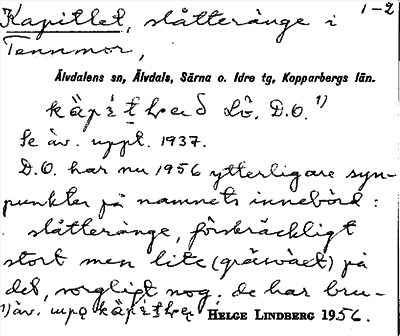 1-2
Kapitlet, slåtteränge i
Tennmor,
Älvdalens sn, Älvdals, Särna o. Idre tg, Kopparbergs län.
D.O. 1)
Se äv. uppt. 1937.
D.O. har nu 1956 ytterligare syn-
punkter på namnets innebörd:
slåtteränge, förskräckligt
stort men lite (gräsväct) på
det, sorgligt nog; de har bru-
1) äv. uppt.
HELGE LINDBERG 1956.